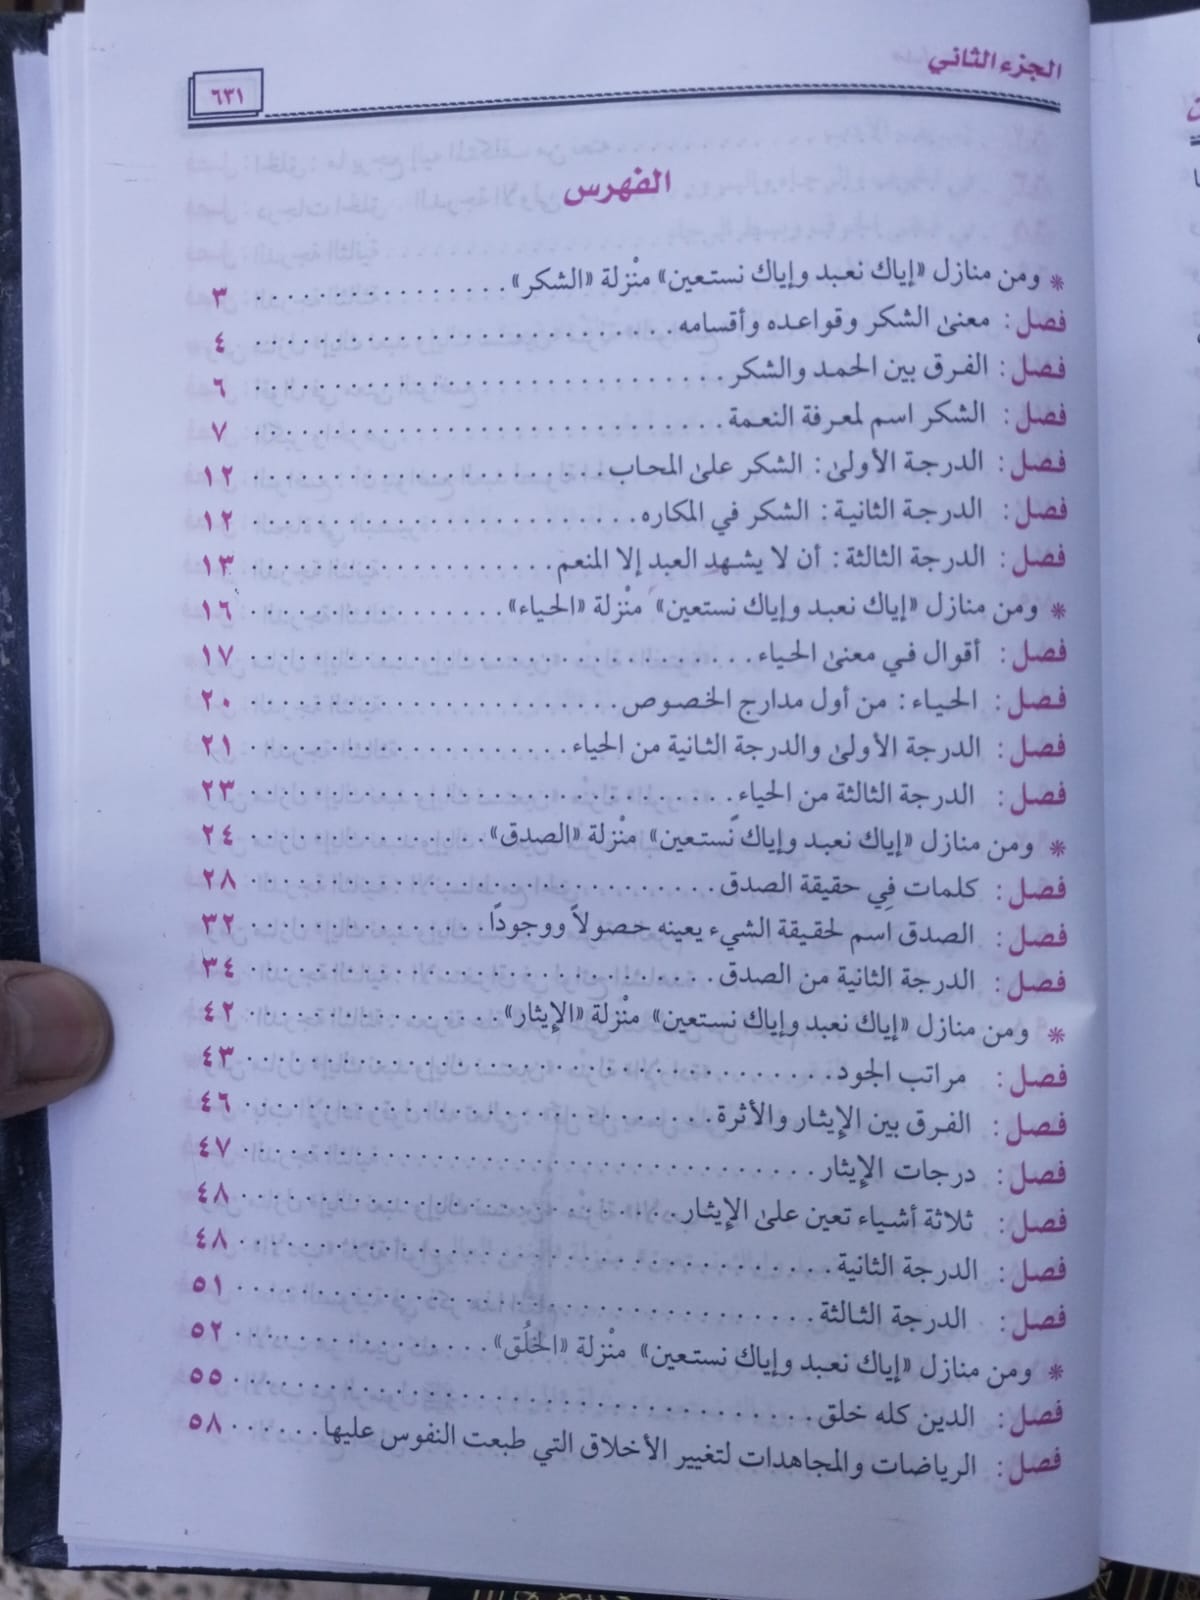 الجزء الثاني
٦٣١
الفهرس
* ومن منازل «إياك نعبد وإياك نستعين» منْزلة «الشكر» ................ ٣
فصل: معنىٰ الشكر وقواعده وأقسامه ................ ٤
فصل: الفرق بين الحمد والشكر ................ ٦
فصل: الشكر اسم لمعرفة النعمة ................ ٧
فصل: الدرجة الأولىٰ: الشكر علىٰ المحاب ................ ١٢
فصل: الدرجة الثانية: الشكر في المكاره ................ ١٢
فصل: الدرجة الثالثة: أن لا يشهد العبد إلا المنعم ................ ١٣
* ومن منازل «إياك نعبد وإياك نستعين» منْزلة «الحياء» ................ ١٦
فصل: أقوال في معنىٰ الحياء ................ ١٧
فصل: الحياء: من أول مدارج الخصوص ................ ٢٠
فصل: الدرجة الأولىٰ والدرجة الثانية من الحياء ................ ٢١
فصل: الدرجة الثالثة من الحياء ................ ٢٣
* ومن منازل «إياك نعبد وإياك نستعين» منْزلة «الصدق» ................ ٢٤
فصل: كلمات فِي حقيقة الصدق ................ ٢٨
فصل: الصدق اسم لحقيقة الشيء يعينه حصولاً ووجودًا ................ ٣٢
فصل: الدرجة الثانية من الصدق ................ ٣٤
* ومن منازل «إياك نعبد وإياك نستعين» منْزلة «الإيثار» ................ ٤٢
فصل: مراتب الجود ................ ٤٣
فصل: الفرق بين الإيثار والأثرة ................ ٤٦
فصل: درجات الإيثار ................ ٤٧
فصل: ثلاثة أشياء تعين علىٰ الإيثار ................ ٤٨
فصل: الدرجة الثانية ................ ٤٨
فصل: الدرجة الثالثة ................ ٥١
* ومن منازل «إياك نعبد وإياك نستعين» منْزلة «الخلُق» ................ ٥٢
فصل: الدين كله خلق ................ ٥٥
فصل: الرياضات والمجاهدات لتغيير الأخلاق التي طبعت النفوس عليها ...... ٥٨